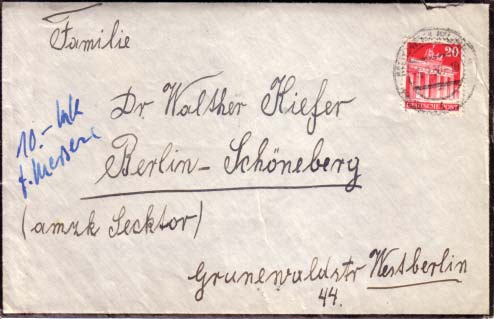 Familie
Dr Walther Kiefer
Berlin-Schöneberg
(amzk Secktor)
Grunewaldstr Westberlin
44.
10.-
20
DEUTSCHE POST